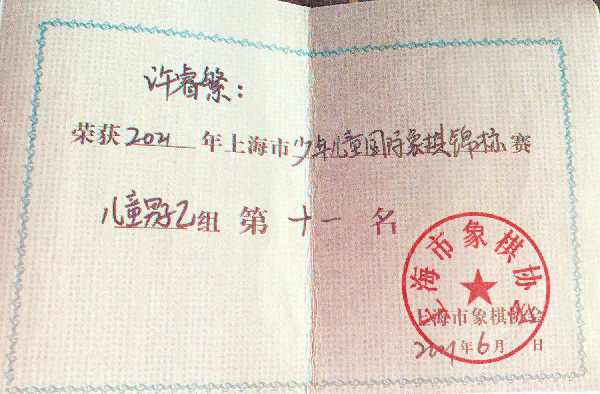 许睿繁：
荣获2021年上海市少年儿童国际象棋锦标赛
儿童男子乙组 第十一名
上海市象棋协会
上海市象棋协会
2021年6月 日